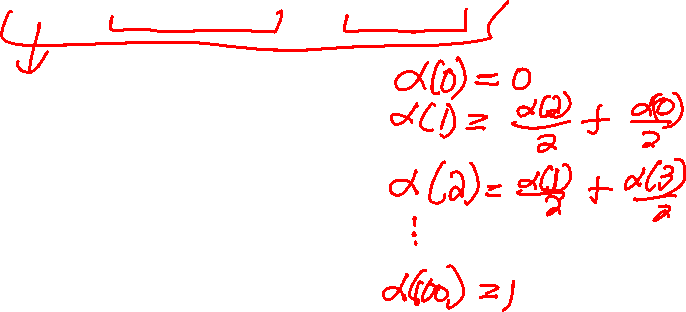 α(0) = 0
α(1) = α(2)/2 + α(0)/2
α(2) = α(1)/2 + α(3)/2
⋮
α(100) = 1